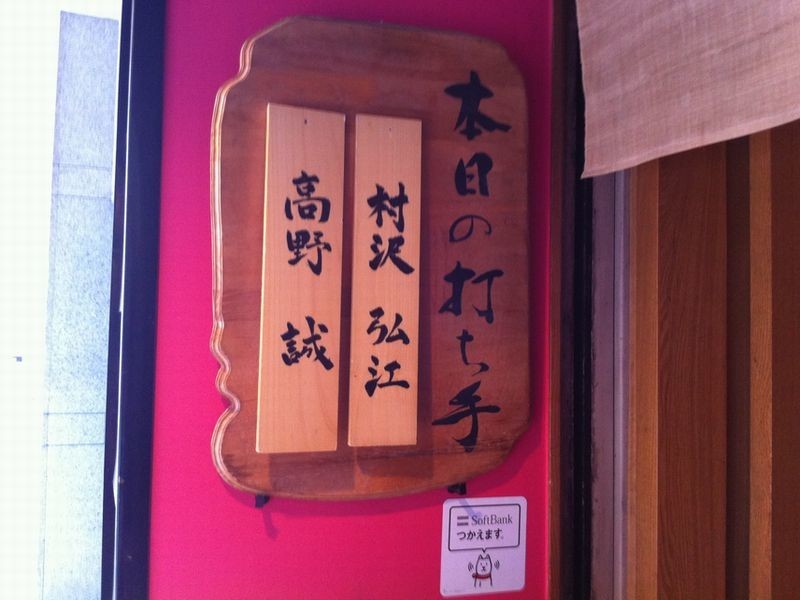 本日の打ち手
村沢 弘江
高野 誠
SoftBank
つかえます。